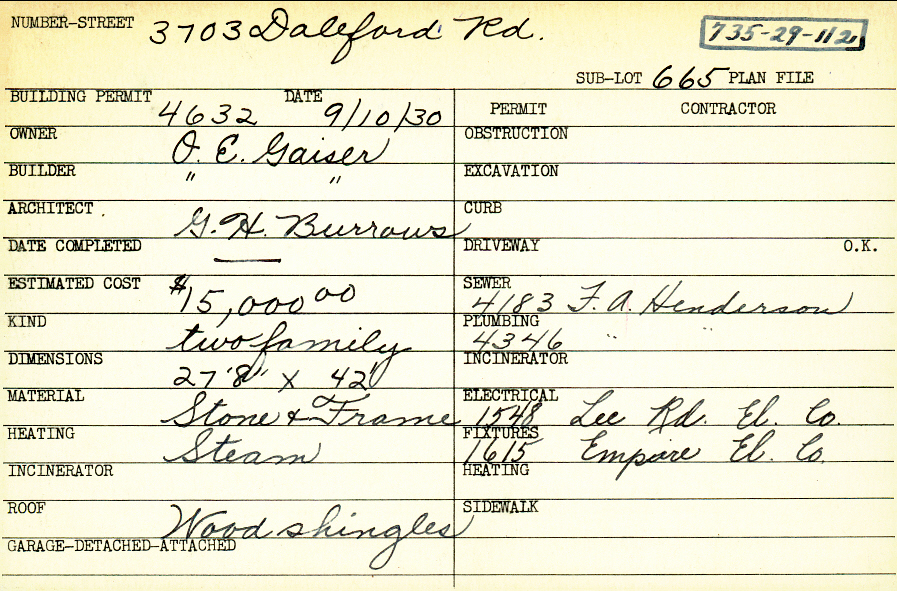 NUMBER-STREET 3703 Daleford Rd. 735-29-112
SUB-LOT 665 PLAN FILE
BUILDING PERMIT 4632 DATE 9/10/30 PERMIT CONTRACTOR
OWNER O. E. Gaiser OBSTRUCTION
BUILDER " " EXCAVATION
ARCHITECT G. H. Burrows CURB
DATE COMPLETED — DRIVEWAY O.K.
ESTIMATED COST $15,000 00 SEWER 4183 F. A. Henderson
KIND two family PLUMBING 4346 " "
DIMENSIONS 27'8" X 42' INCINERATOR
MATERIAL Stone & Frame ELECTRICAL 1548 Lee Rd. El. Co.
HEATING Steam FIXTURES 1615 Empire El. Co.
INCINERATOR HEATING
ROOF Wood shingles SIDEWALK
GARAGE-DETACHED-ATTACHED